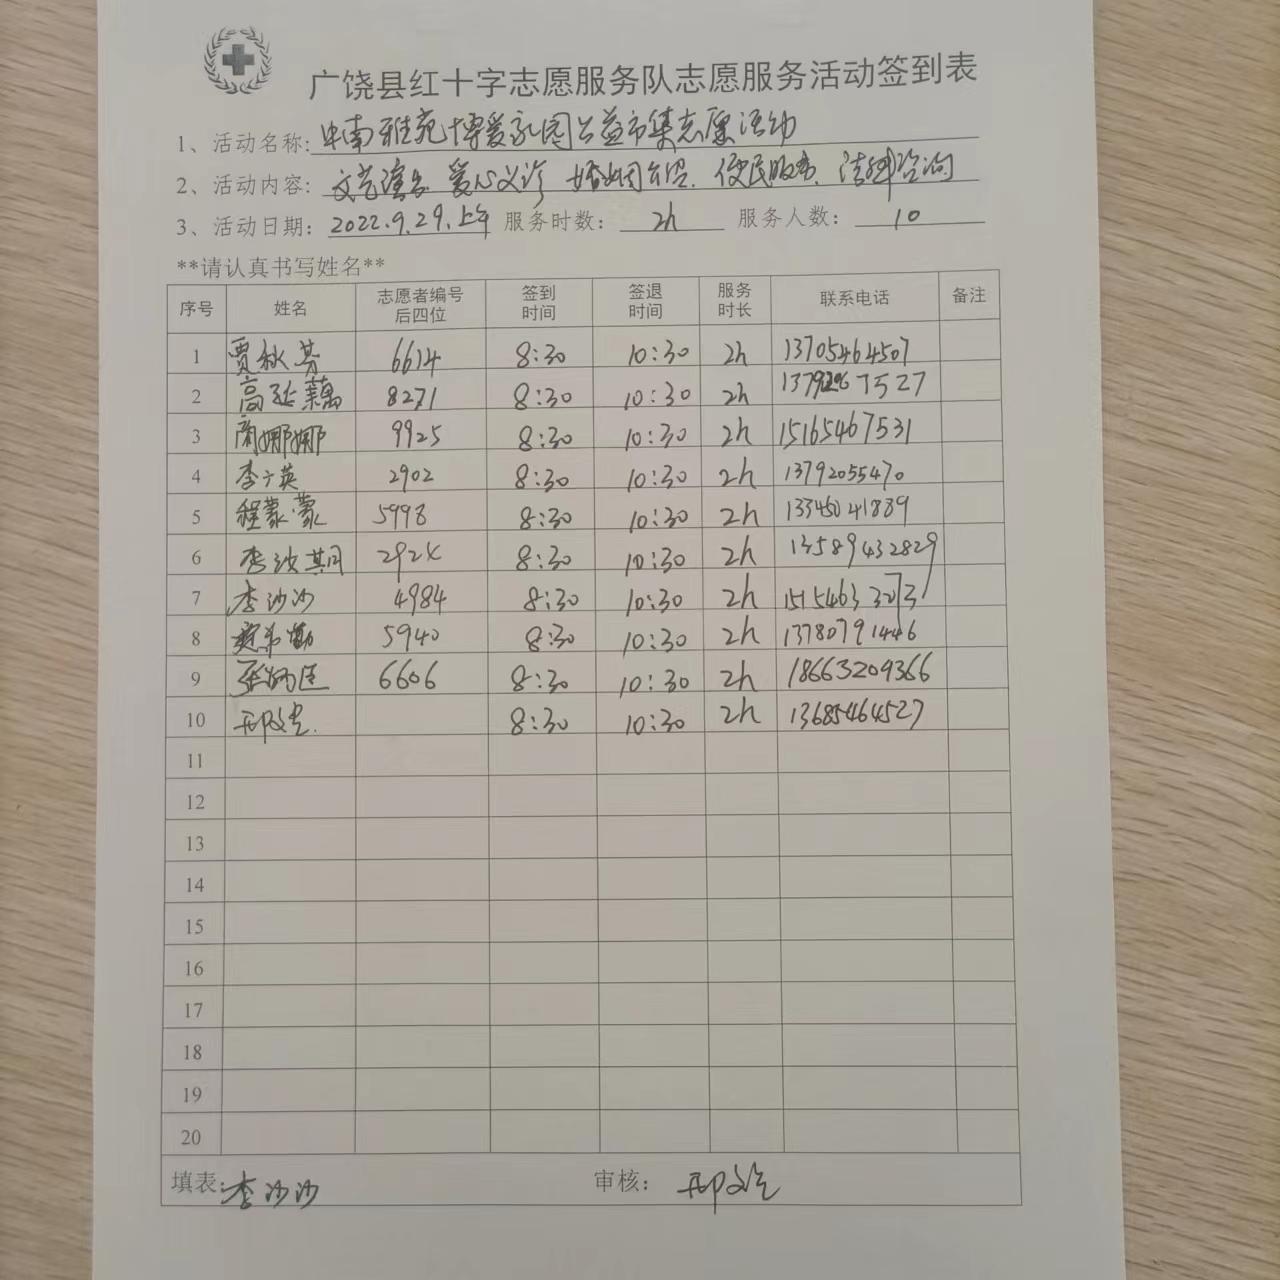 广饶县红十字志愿服务队志愿服务活动签到表
1、活动名称:中南雅苑博爱家园公益市集志愿活动
2、活动内容:文艺演出 爱心义诊 婚姻 便民服务、法律咨询
3、活动日期:2022.9.29.上午 服务时数: 2h 服务人数: 10
**请认真书写姓名**
序号 姓名 志愿者编号后四位 签到时间 签退时间 服务时长 联系电话 备注
1 贾秋芬 6614 8:30 10:30 2h 13705464507
2 高延藕 8271 8:30 10:30 2h 7527
3 商娜娜 9925 8:30 10:30 2h 15165467531
4 李英 2902 8:30 10:30 2h 13792055470
5 程蒙蒙 5998 8:30 10:30 2h 13345041839
6 李 8:30 10:30 2h 13589432829
7 李沙沙 4984 8:30 10:30 2h 15154633073
8 5940 8:30 10:30 2h 13780791446
9 张炳臣 6606 8:30 10:30 2h 18663209366
10 邢 8:30 10:30 2h 13685464527
11
12
13
14
15
16
17
18
19
20
填表:李沙沙 审核: 邢